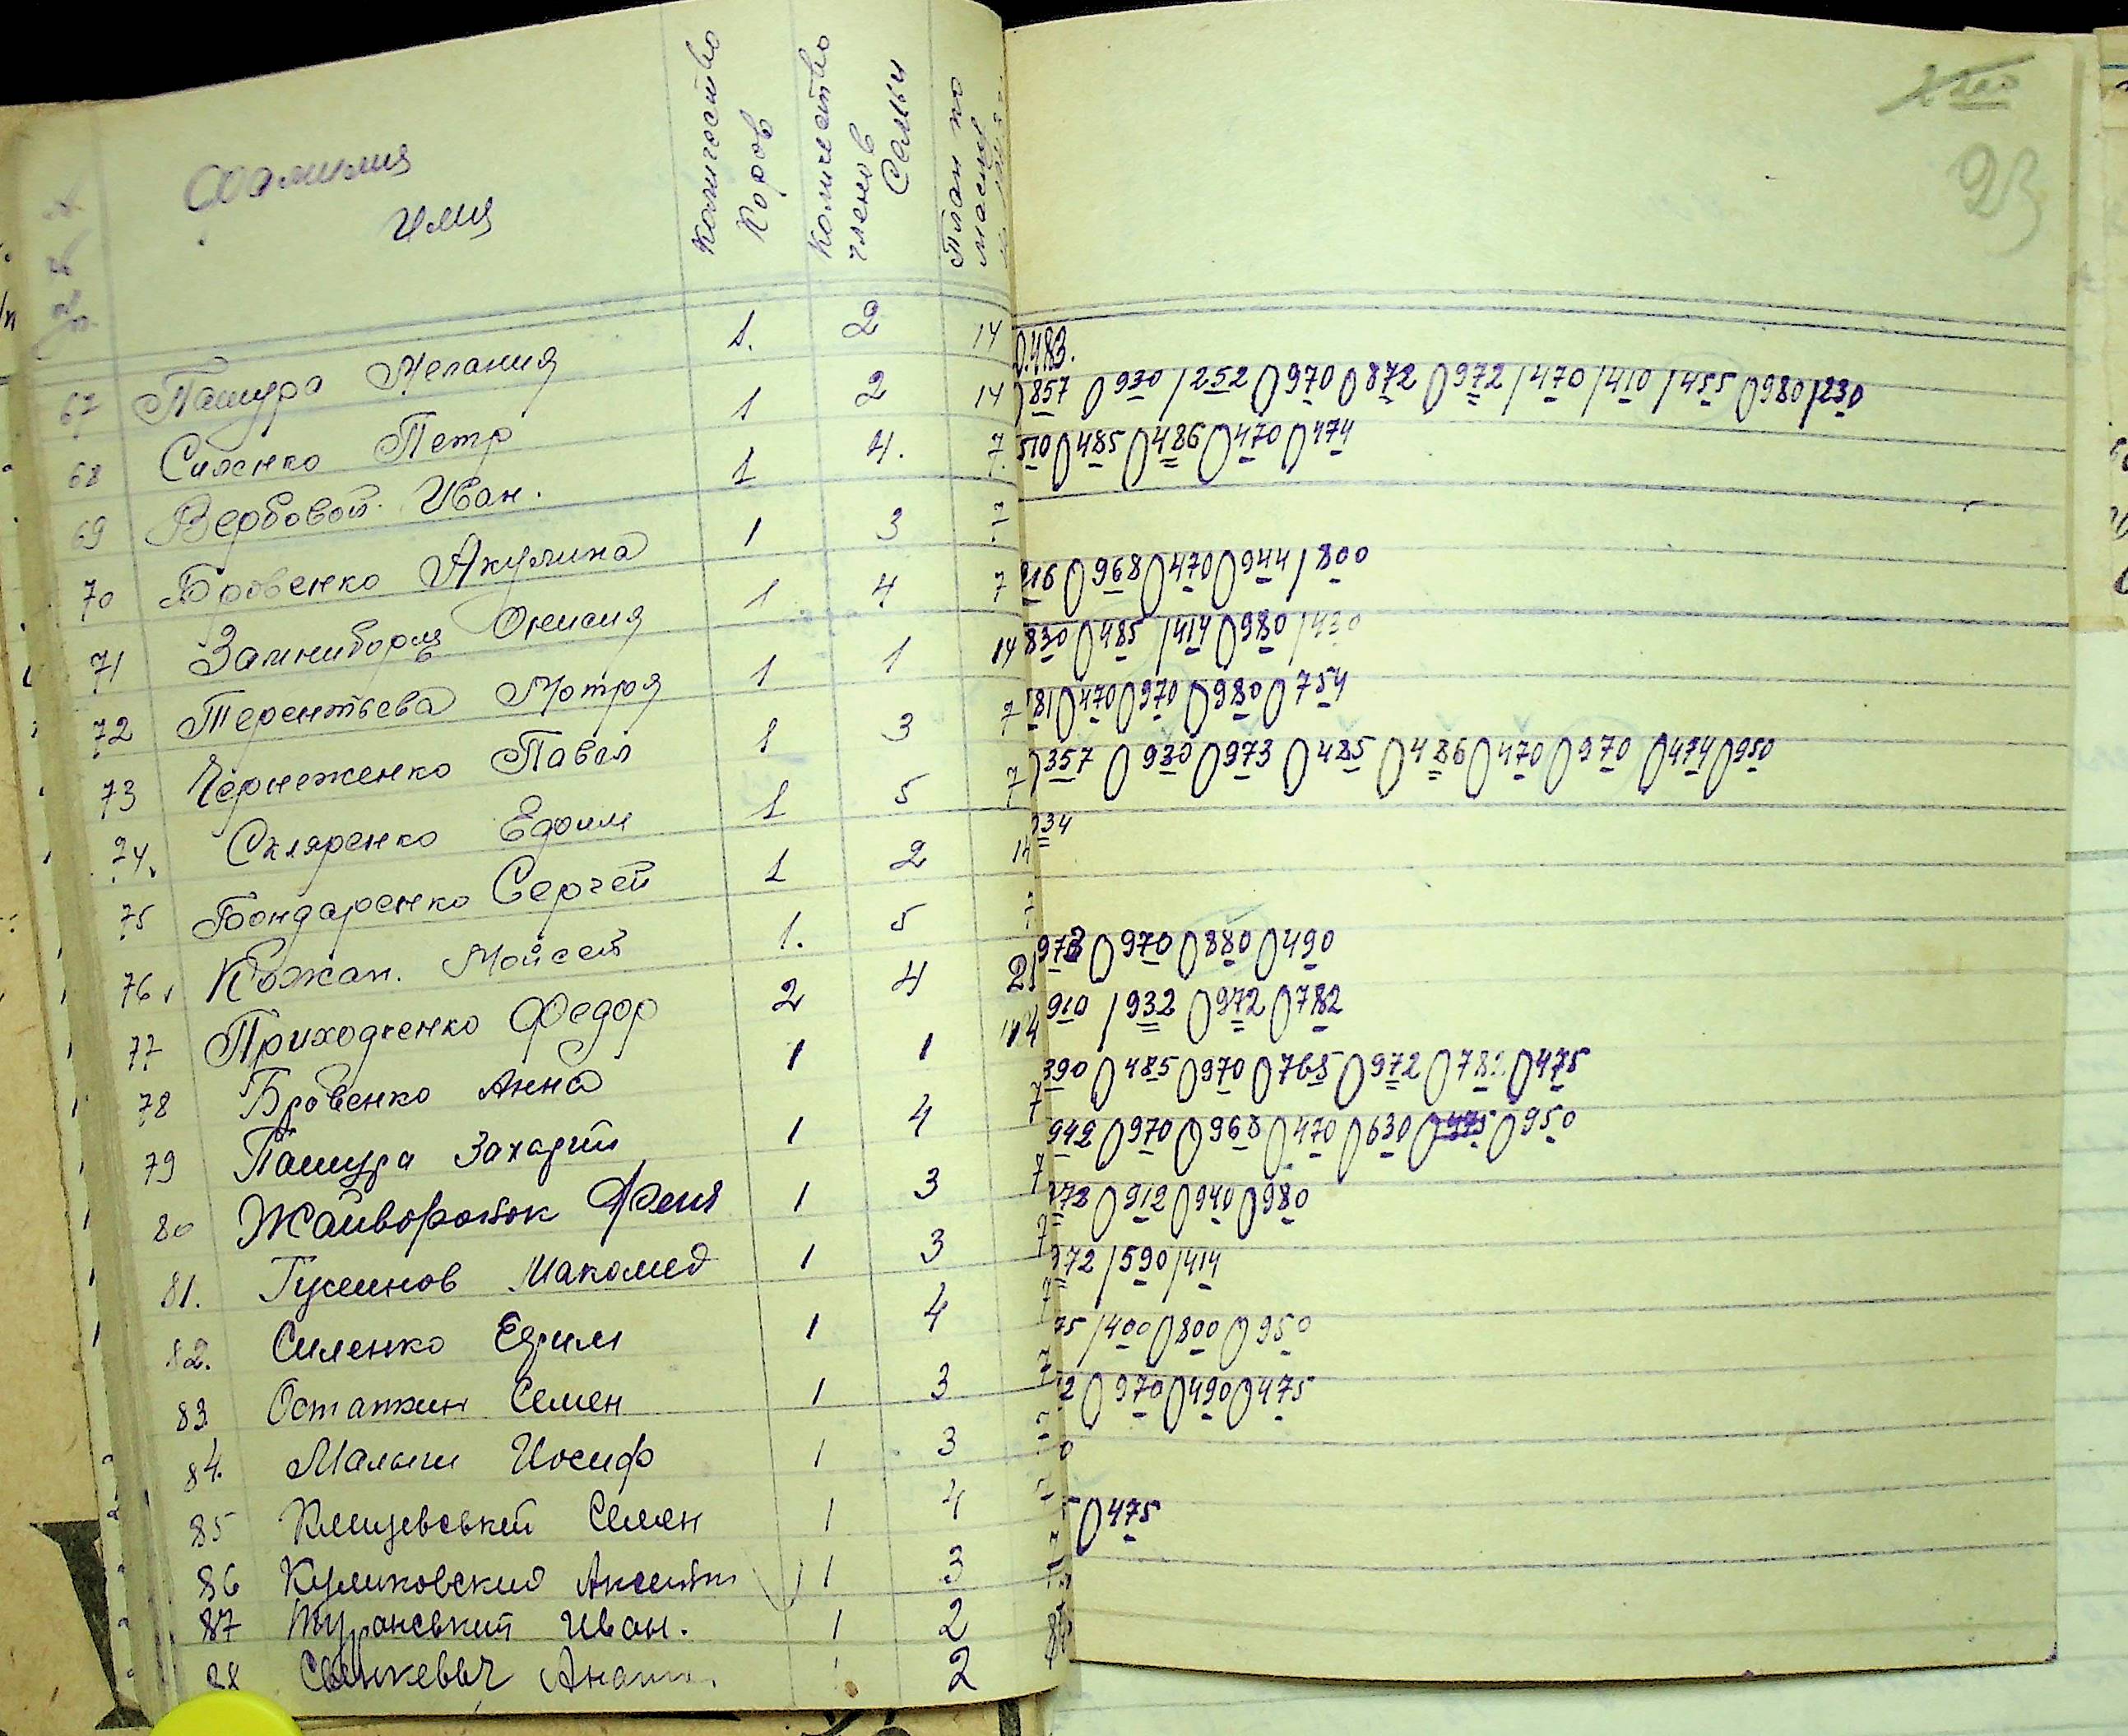 Фамилия имия
Количество Коров
Количество членов Семьи
План по
23
67 Пашура Мелания 1. 2 14
0.483.
68 Силенко Петр 1 2 14
857 0930 1252 0970 0872 0972 1470 1410 1455 0980 1230
69 Вербовой Иван. 1 4. 7.
510 0485 0486 0470 0474
70 Бровенко Акулина 1 3 7
71 Оксися 1 4 7
216 0968 0470 0944 1800
72 Терентьева Мотря 1 1 14
830 0485 1414 0980 1430
73 Чернеженко Павел 1 3 7
81 0470 0970 0980 0754
74. Скляренко Ефим 1 5 7
357 0930 0973 0485 0486 0470 0970 0474 0950
75 Бондаренко Сергей 1 2 14
934
76. Кожан. Мойсей 1. 5 7
77 Приходченко Федор 2 4 21
973 0970 0880 0490
78 Бровенко Анна 1 1 14
910 1932 0972 0782
79 Пашура Захарий 1 4 7
390 0485 0970 0765 0972 0782 0475
80 Жайворонок Феня 1 3 7
942 0970 0968 0470 0630 0475 0950
81. Гусеинов Макомед 1 3 7
972 0912 0940 0980
82. Силенко Ефим 1 4 7
972 1590 1414
83. Останкин Семен 1 3 7
75 1400 0800 0950
84. Малыш Иосиф 1 3 7
2 0970 0490 0475
85 Семен 1 4 7
0
86 Куликовский 1 3 7
0475
87 Туранський Иван. 1 2
88 2